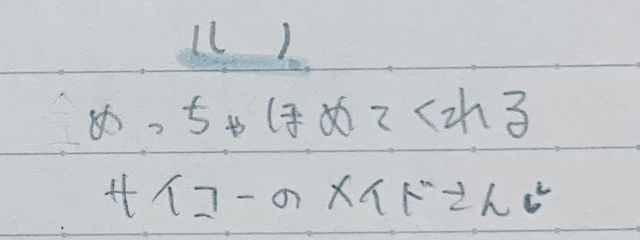 めっちゃほめてくれる
サイコーのメイドさん